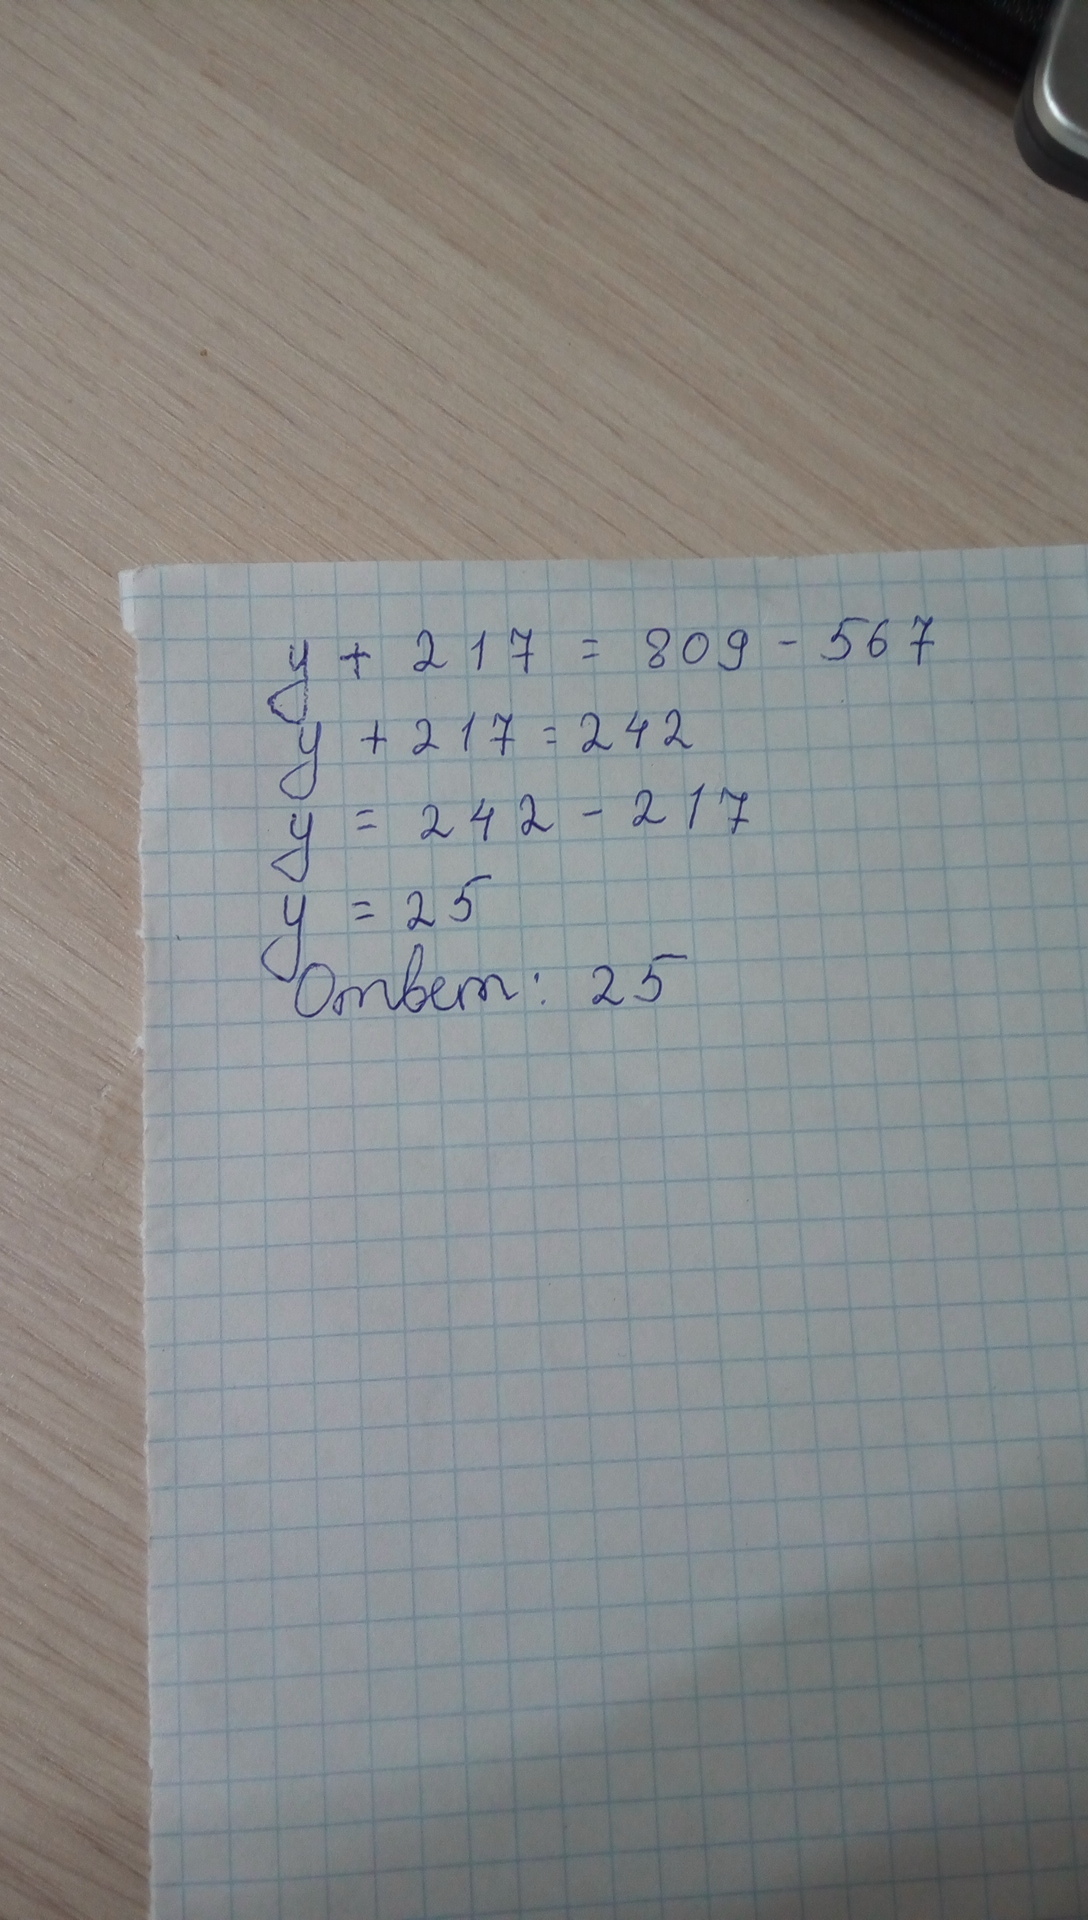 y + 217 = 809 - 567
y + 217 = 242
y = 242 - 217
y = 25
Ответ: 25